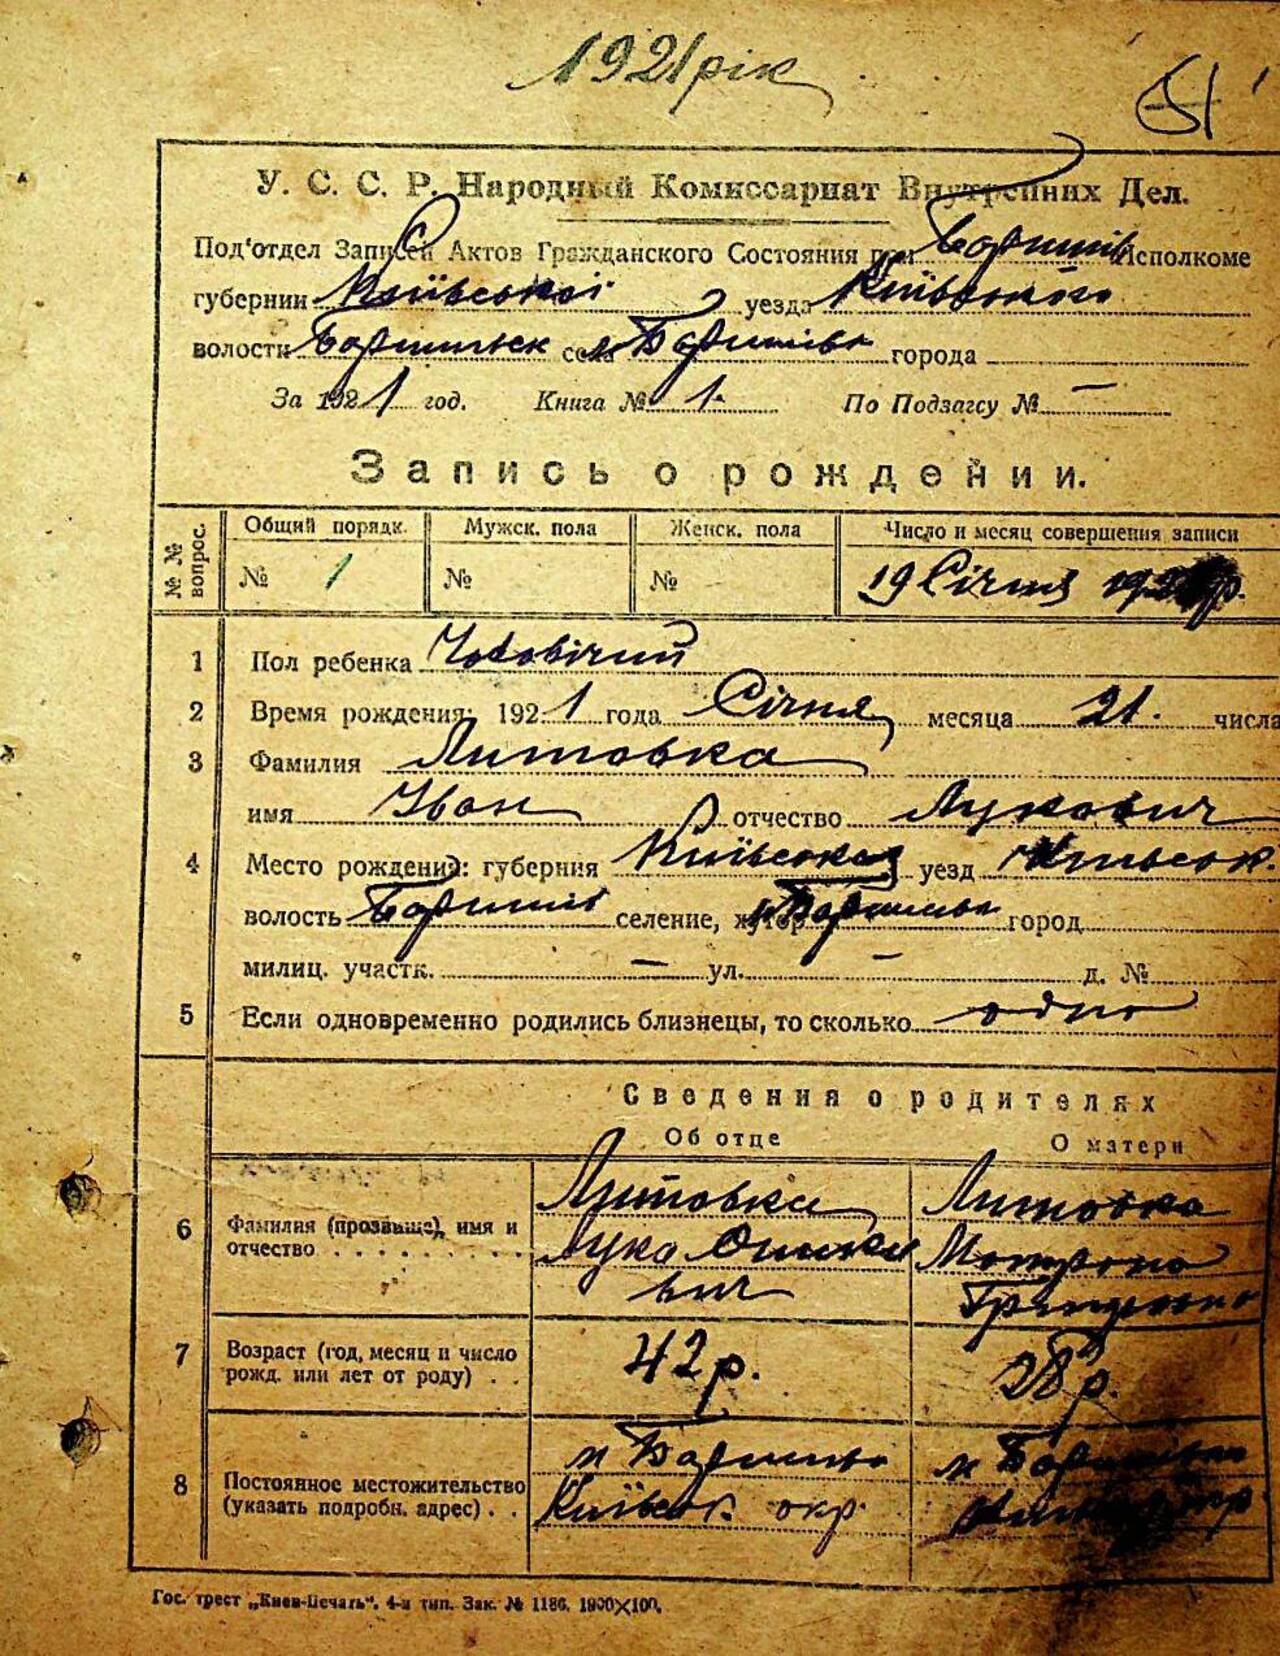 1921 рік
51
У. С. С. Р. Народный Комиссариат Внутренних Дел.
Под'отдел Записей Актов Гражданского Состояния при Баришів Исполкоме
губернии Київської уезда Київського
волости села м Баришівка города
За 1921 год. Книга № 1. По Подзагсу № —
Запись о рождении.
№ № вопрос. Общий порядк. Мужск. пола Женск. пола Число и месяц совершения записи
№ 1 № № 19 Січня р.
1 Пол ребенка Чоловічий
2 Время рождения: 1921 года Січня месяца 21. числа
3 Фамилия Литовка
имя Іван отчество Лукович
4 Место рождения: губерния уезд Київськ.
волость Баришів селение, хутор м Баришівка город
милиц. участк. — ул. — д. №
5 Если одновременно родились близнецы, то сколько одно
Сведения о родителях
Об отце О матери
6 Фамилия (прозвище), имя и отчество . . . . . . . . . .
Литовка
Лука
вич
Литовка
Мотрона
7 Возраст (год, месяц и число рожд. или лет от роду) . .
42 р.
28 р.
8 Постоянное местожительство (указать подробн. адрес) . .
м Баришівка
Київськ. окр.
м Баришівка
окр.
Гос. трест „Киев-Печать". 4-я тип. Зак. № 1186. 1900×100.